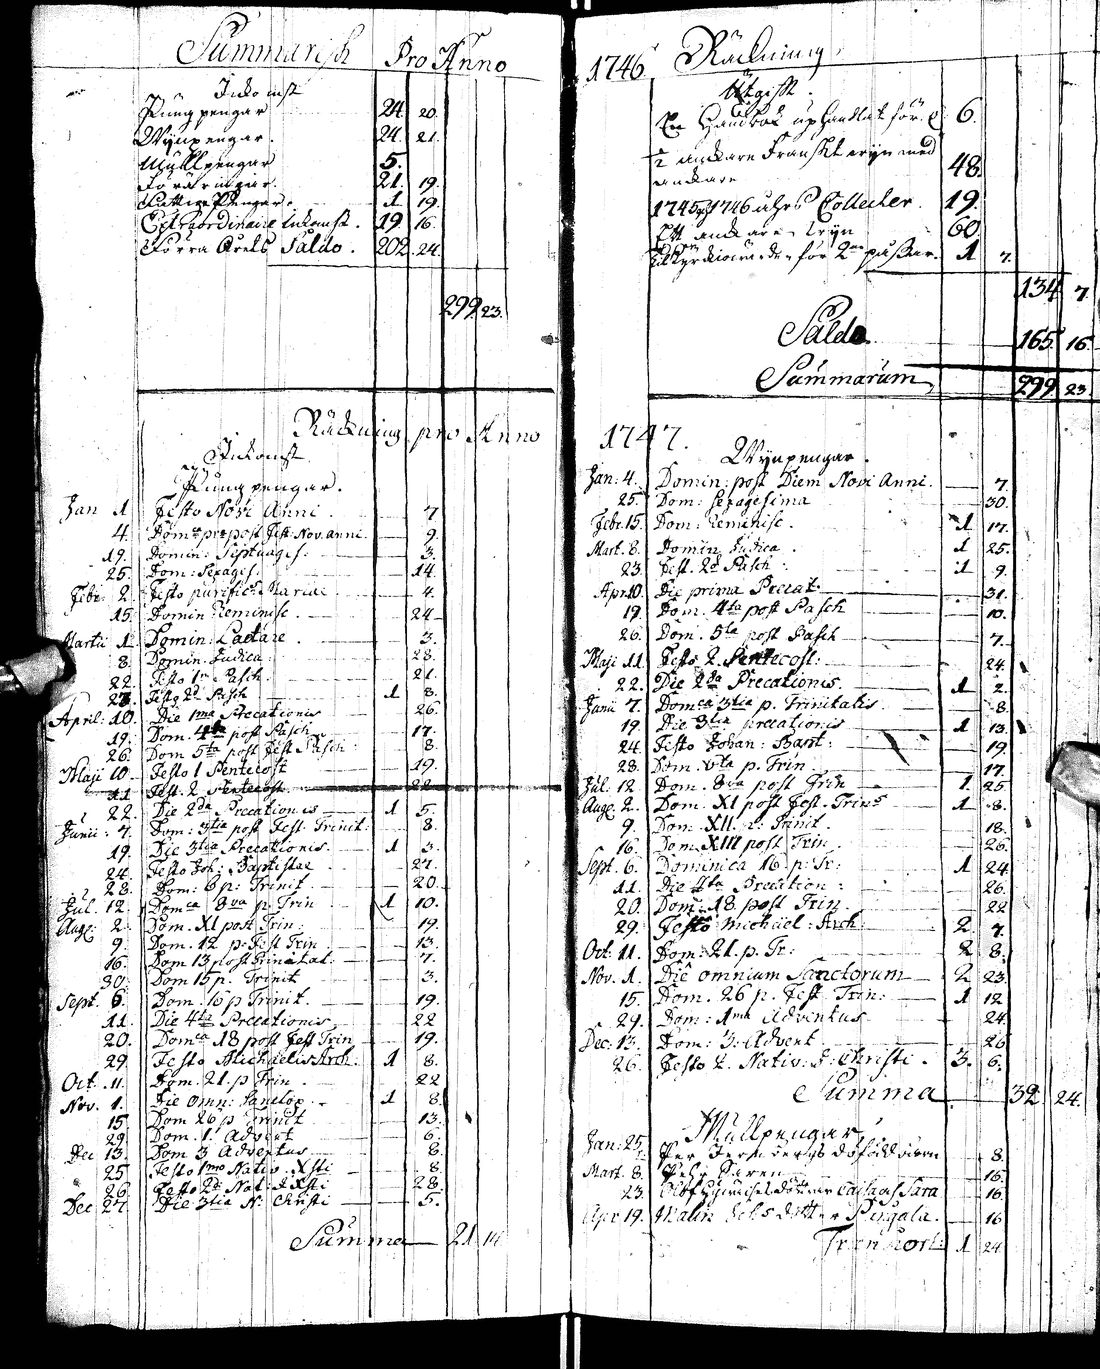 Summarisk Pro Anno
Inkomst
Pungpengar 24. 20.
Wijnpengar. 24. 21.
Mullpengar 5.
Föräringar. 21. 19.
1 19.
Extraordinaire Inkomst. 19. 16.
Förra Årets Saldo. 202. 24.
299 23.
Räkning pro Anno
Inkomst
Pungpengar.
Jan 1 Festo Novi Anni. 7
4. Dom post Fest Nov. anni. 9.
19. Domin: Septuages. 3.
25. Dom: Sexages. 14.
Febr. 2. Festo purific: Mariae 4.
15. Domin Reminisc. 24
Martii 1. Domin: Laetare. 3.
8. Domin. Judica. 28.
22. Festo 1mo Pasch. 21.
23. Festo 2d Pasch 1 8.
April: 10. Die 1ma Precationis 26.
19. Dom. 4ta post Pasch. 17.
26. Dom 5ta post Fest Pasch: 8.
Maji 10. Festo 1 Pentecost 19.
11. Fest. 2 Pentecost. 22
22. Die 2da Precationis 1 5.
Junii. 7. Dom: 3tia post Fest. Trinit: 8.
19. Die 3tia Precationis. 1 3.
24. Festo Joh: Baptistae 27.
28. Dom: 6 p: Trinit. 20.
Jul. 12. Domca 8va p. Trin 1 10.
Aug. 2. Dom. XI post Trin. 19.
9. Dom. 12 p. Fest Trin 13.
16. Dom 13 post Trinitat: 7.
30. Dom 15 p. Trinit 3.
Sept. 6. Dom. 16 p Trinit. 19.
11. Die 4ta Precationis 22
20. Domca 18 post Fest Trin 19.
29. Festo Michaelis Arch: 1 8.
Oct. 11. Dom. 21. p Trin. 22
Nov. 1. Die omn: Sanctor. 1 8.
15. Dom 26 p Trinit 13.
29. Dom. 1. Advent 6.
Dec 13. Dom 3 Adventus 8.
25 Festo 1mo Nativ. Xsti 8.
26 Festo 2do Nat: J: Xsti 28.
Dec 27. Die 3tia N: Christi 5.
Summa 21
1746 Räkning
Utgift.
En Handbok uphandlat för. 6.
1/2 ankare Franskt wijn med
ankare 48.
1745 och 1746 åhrs Collecter. 19.
Ett ankare wijn 60.
för 2ne 1 7.
134 7.
Saldo. 165. 16.
Summarum 299 23.
1747.
Wijnpengar.
Jan: 4. Domin: post Diem Novi Anni. 7.
25. Dom: Sexagesima 30.
Febr. 15. Dom: Reminisc. 1 17.
Mart. 8. Domin. Judica. 1 25.
23. Fest. 2d Pasch. 1 9.
Apr. 10. Die prima Precat. 31.
19. Dom. 4ta post Pasch 10.
26. Dom. 5ta post Pasch 7.
Maji 11. Festo 2. Pentecost: 24.
22. Die 2da Precationis. 1 2.
Junii 7. Domca 3tia p. Trinitatis. 8.
19. Die 3tia precationis 1 13.
24. Festo Johan: Bapt: 19.
28. Dom. 6ta p. Trin. 17.
Jul. 12 Dom. 8va p. Trin 1. 25.
Aug. 2. Dom. XI post Fest. Trin: 1 8.
9. Dom. XII. p: Trinit. 18.
16. Dom XIII post Trin. 26.
Sept. 6. Dominica 16 p: Tr: 1 24.
11. Die 4ta Precation: 26.
20. Dom: 18 post Trin. 22
29. Festo Michael: Arch: 2. 7.
Oct: 11. Dom: 21. p. Tr: 2 8.
Nov. 1. Die omnium Sanctorum 2 23.
15. Dom. 26 p. Fest Trin: 1 12.
29. Dom: 1ma Adventus 24.
Dec: 13. Dom: 3: Advent 26
26. Festo 2. Nativ: J: Christi. 3. 6.
Summa 32 24.
Mullpengar
Jan: 25. Per 8.
Mart. 8. Pehr 16.
23. Sara 16.
Apr 19. Malin 16
Transport: 1 24.